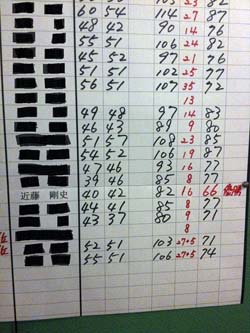 60 54 114 27 87
48 42 90 14 76
55 51 106 24 82
45 52 97 21 76
51 51 102 25 77
56 51 107 35 72
13
49 48 97 14 83
46 43 89 9 80
51 57 108 23 85
54 52 106 19 87
47 46 93 16 77
39 46 85 8 77
近藤 剛史 40 42 82 16 66
44 41 85 8 77
43 37 80 9 71
52 51 103 27.5 71
55 51 106 27.5 74